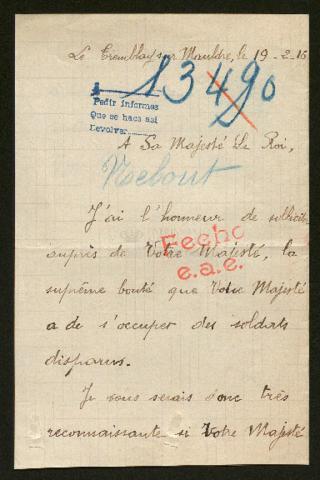 Le Tremblay sur Mauldre, le 19-2-16
13490
Pedir informes
Que se haca asi
Devolver
A Sa Majesté Le Roi,
Nebout
J'ai l'honneur de solliciter
auprès de Votre Majesté, la
Fecho
e.a.e.
suprême bonté que Votre Majesté
a de s'occuper des soldats
disparus.
Je vous serais donc très
reconnaissante si Votre Majesté